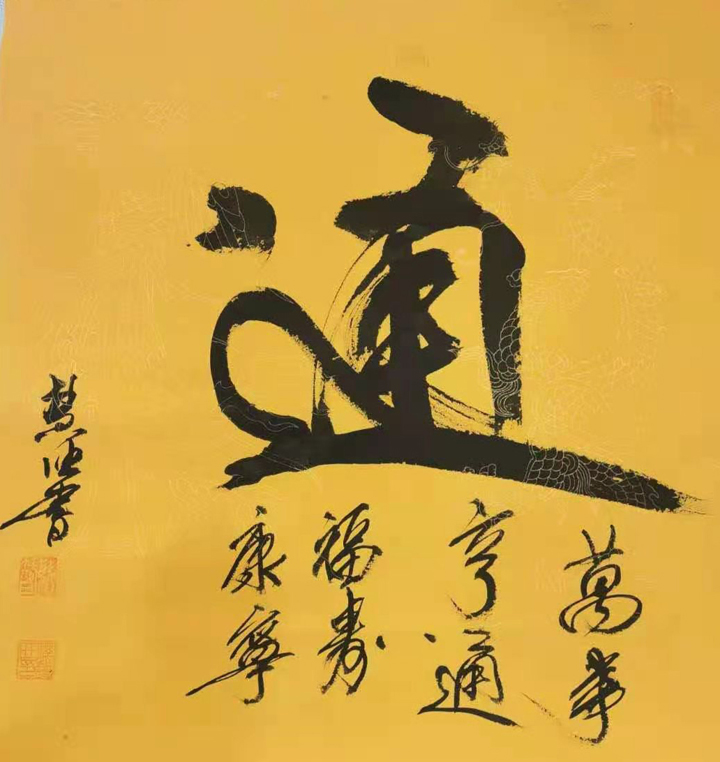 通
萬事
亨通
福寿
康寧
慧 書